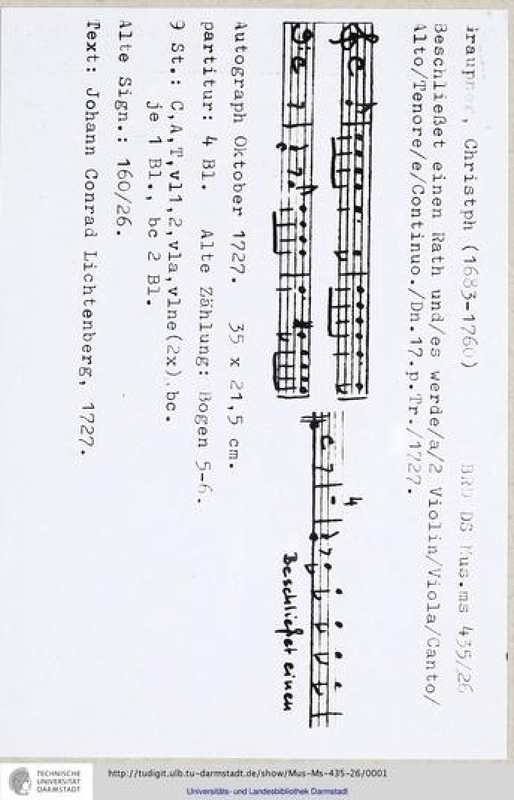 Graupner, Christph (1683-1760) BRD DS Mus.ms 435/26
Beschließet einen Rath und/es werde/a/2 Violin/Viola/Canto/
Alto/Tenore/e/Continuo./Dn.17.p.Tr./1727.
4
Beschließet einen
Autograph Oktober 1727. 35 x 21,5 cm.
partitur: 4 Bl. Alte Zählung: Bogen 5-6.
9 St.: C,A,T,vl1,2,vla,vlne(2x),bc.
je 1 Bl., bc 2 Bl.
Alte Sign.: 160/26.
Text: Johann Conrad Lichtenberg, 1727.
TECHNISCHE
UNIVERSITÄT
DARMSTADT
http://tudigit.ulb.tu-darmstadt.de/show/Mus-Ms-435-26/0001
Universitäts- und Landesbibliothek Darmstadt